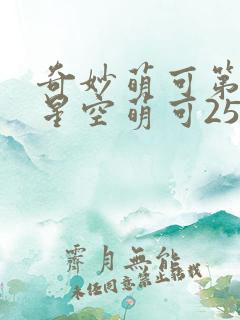 奇妙萌可第
星空萌可25
霽月無能
未经同意禁止转载